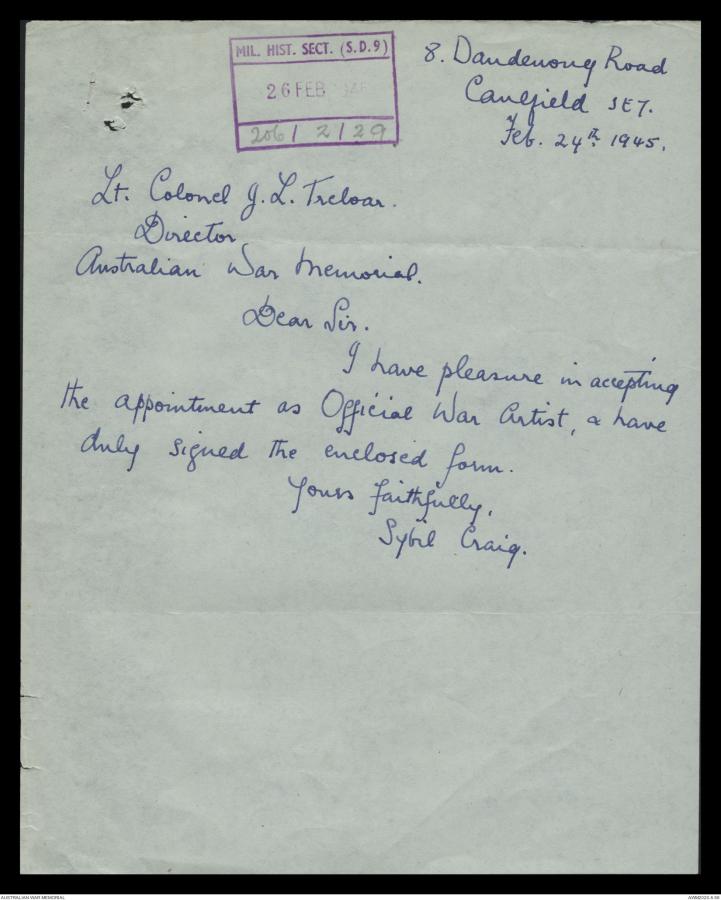 MIL. HIST. SECT. (S.D.9)
26 FEB 1945
206/ 2/29
8. Dandenong Road
Caulfield SE7.
Feb. 24th. 1945.
Lt. Colonel J. L. Treloar.
Director
Australian War Memorial.
Dear Sir.
I have pleasure in accepting
the appointment as Official War Artist, & have
duly signed the enclosed form.
Yours faithfully,
Sybil Craig.
AUSTRALIAN WAR MEMORIAL